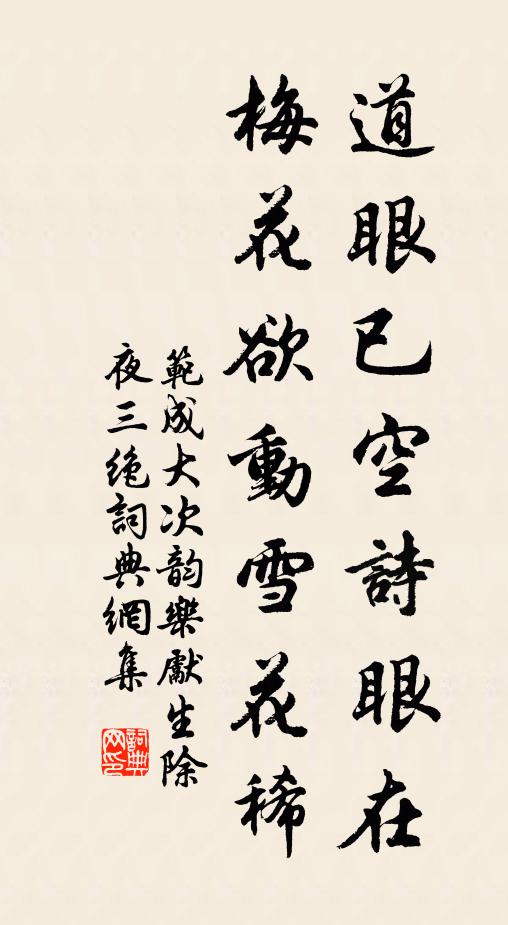 道眼已空詩眼在
梅花欲動雪花稀
範成大次韵樂獻生除
夜三絶詞典網集
詞典网印